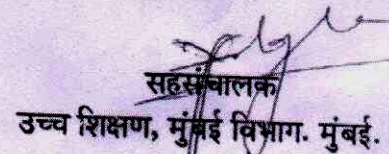 सहसंचालक
उच्च शिक्षण, मुंबई विभाग. मुंबई.